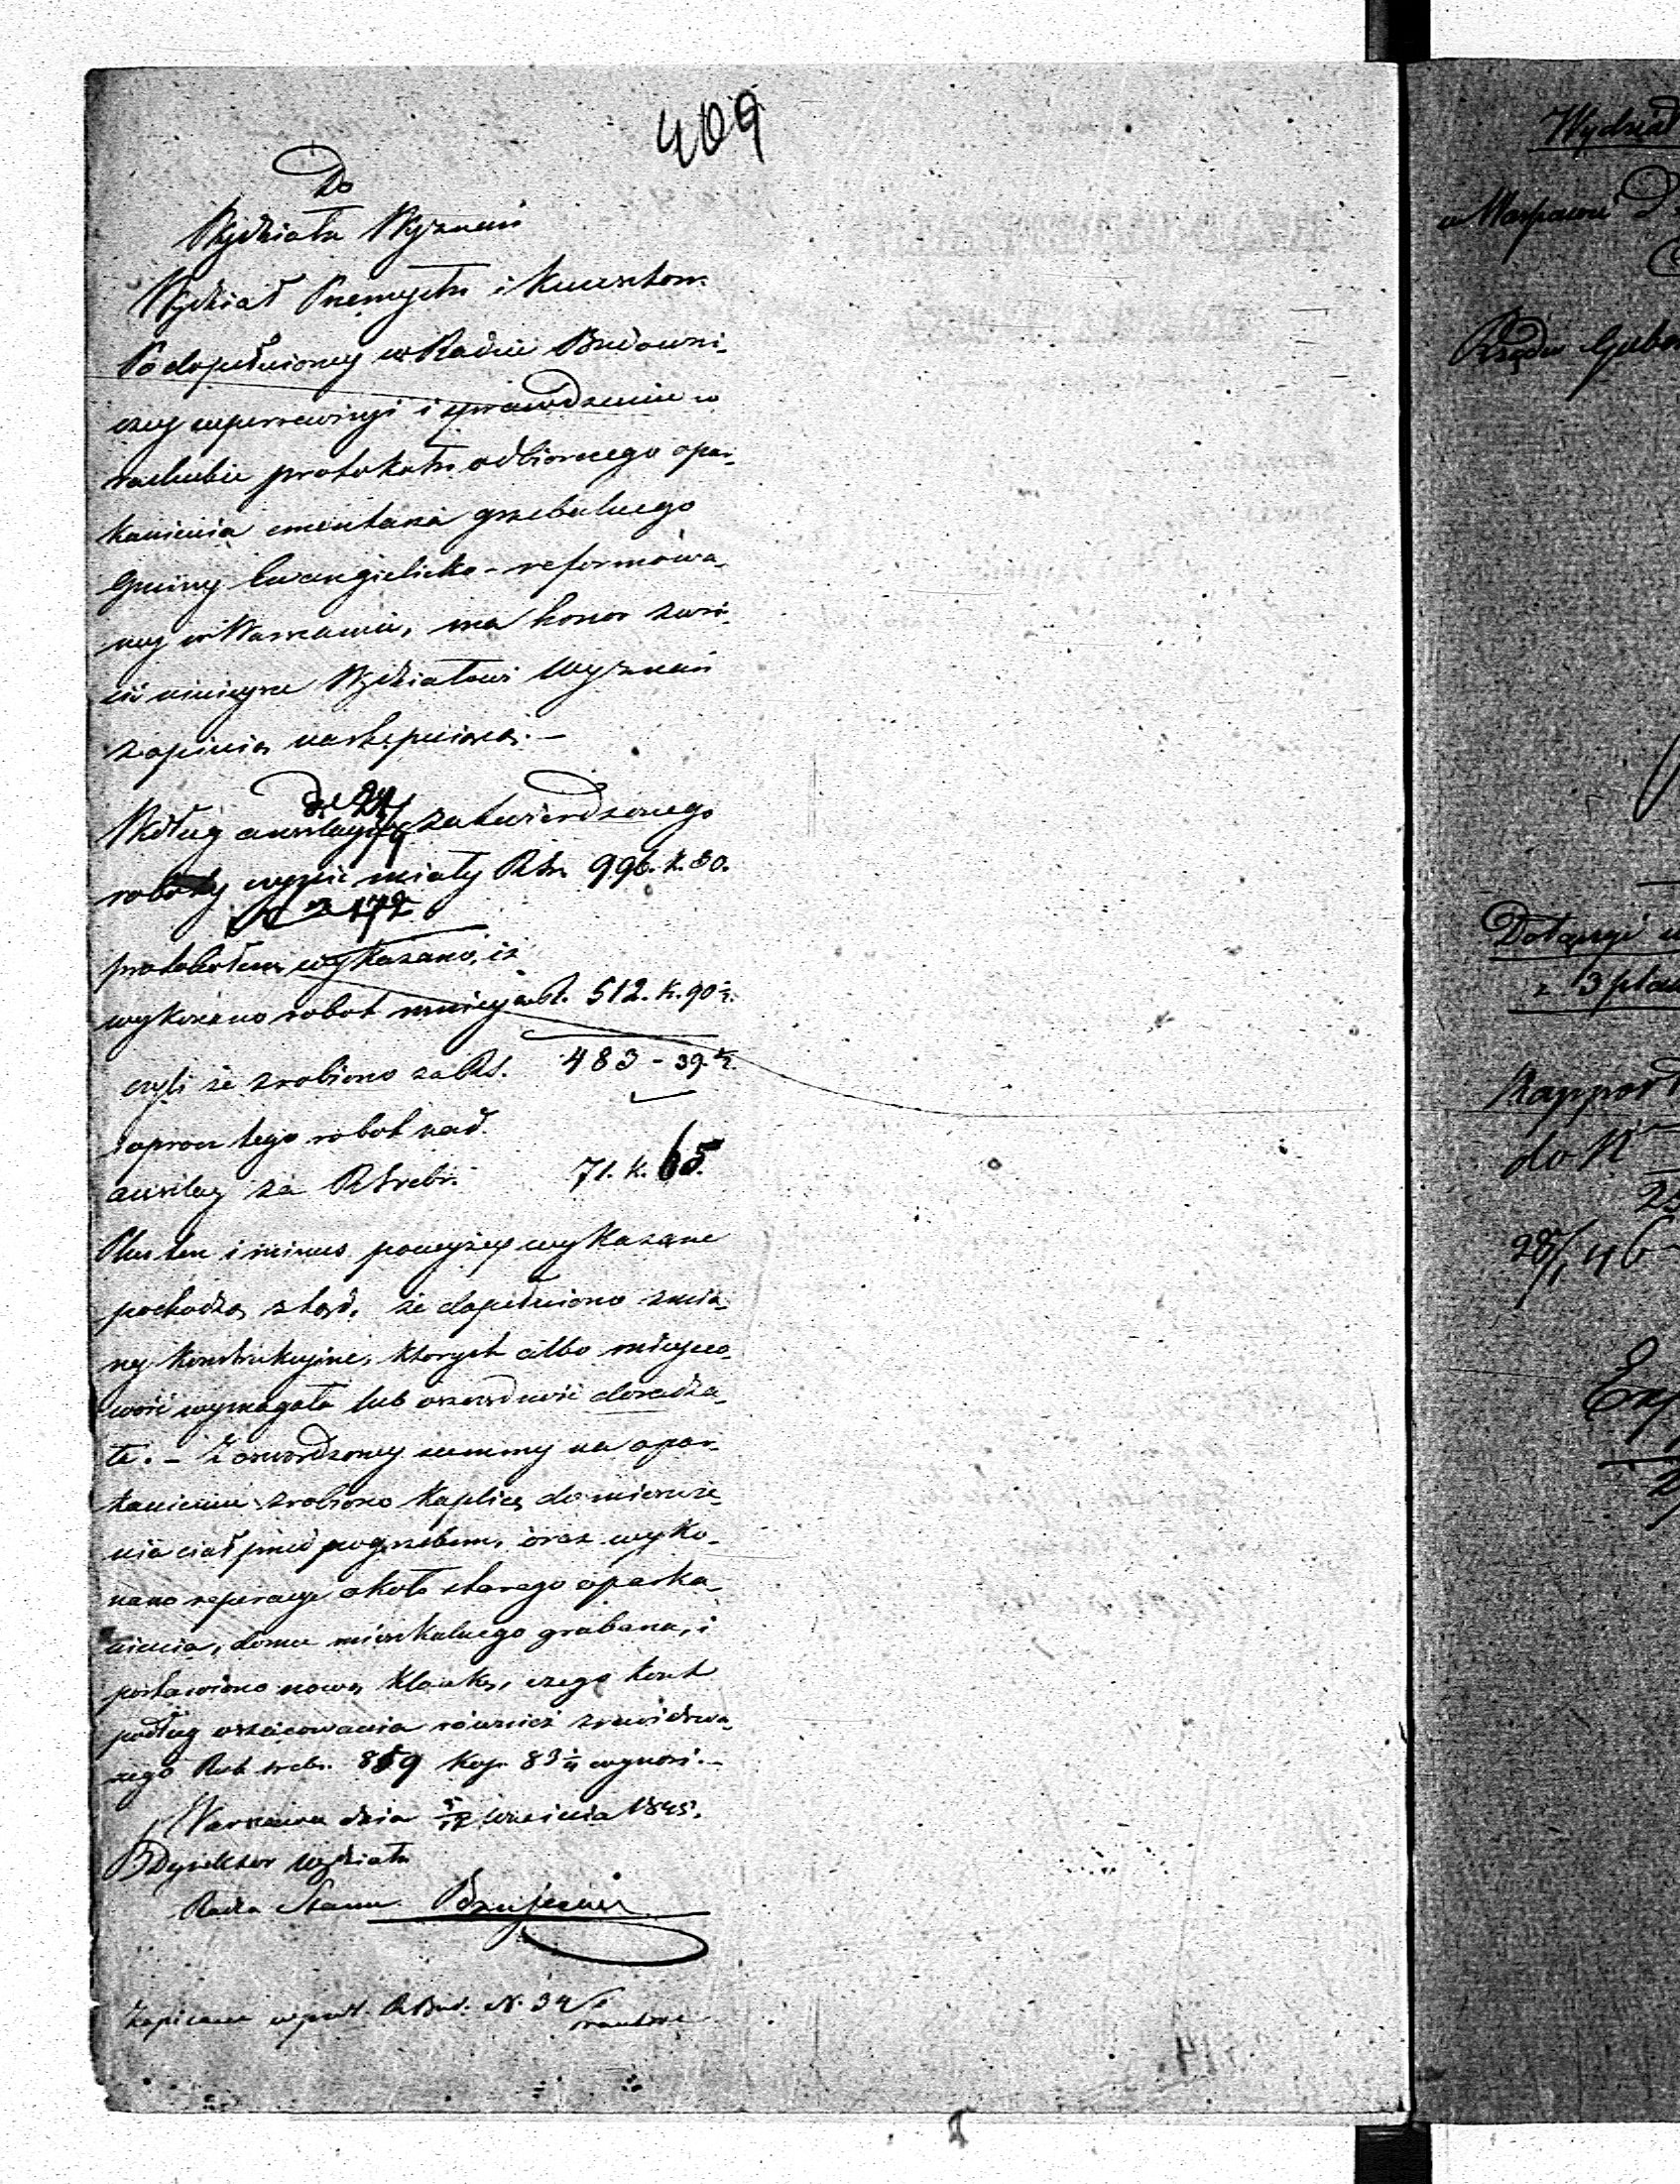 409
Do
Wydziału Wyznań
Wydział Przemysłu i Kunsztow
Po dopełnioney w Radzie Budowni-
czey superrewizyi i sprawdzeniu w
rachubie protokołu odbiorczego opar-
kanienia cmentarza grzebalnego
Gminy Ewangielicko-reformowa-
ney w Warszawie, ma honor zwró-
cić ninieysze Wydziałowi Wyznań
z opinią następuiącą. –
Według anszlagu zatwierdzonego
roboty wynieść miały RSr. 996. k. 30.
protokołem wykazano, iż
wykonano robot mniey za R. 512. k. 90½.
czyli że zrobiono za RS. 483 - 39.½.
oprocz tego robot nad
anszlag za RSrebr. 71. k. 65.
Plus ten i minus powyżey wykazane
pochodzą ztąd, że dopełniono zmia-
ny konstrukcyine, ktorych albo mieysco-
wość wymagała lub oszczędność doradza-
ła. – Z oszczędzoney summy na opar-
kanieniu zrobiono kaplicę do mieszcze-
nia ciał przed pogrzebem, oraz wyko-
nano reperacye około starego oparka-
nienia, domu mieszkalnego grabarza, i
postawiono nową kloakę, czego koszt
podług oszacowania również zrewidowa-
nego Rub. srebr. 859 kop. 83¼ wynosi. –
Warszawa dnia 5/17 Września 1845.
Dyrektor Wydziału
Radca Stanu
Zapisano w prot. R. Bud. N. 34
Wydział
w Warszawie D
Rządu Guber
Dotacyi
z 3 plan
Rapport
do N
28/1 46
Exp